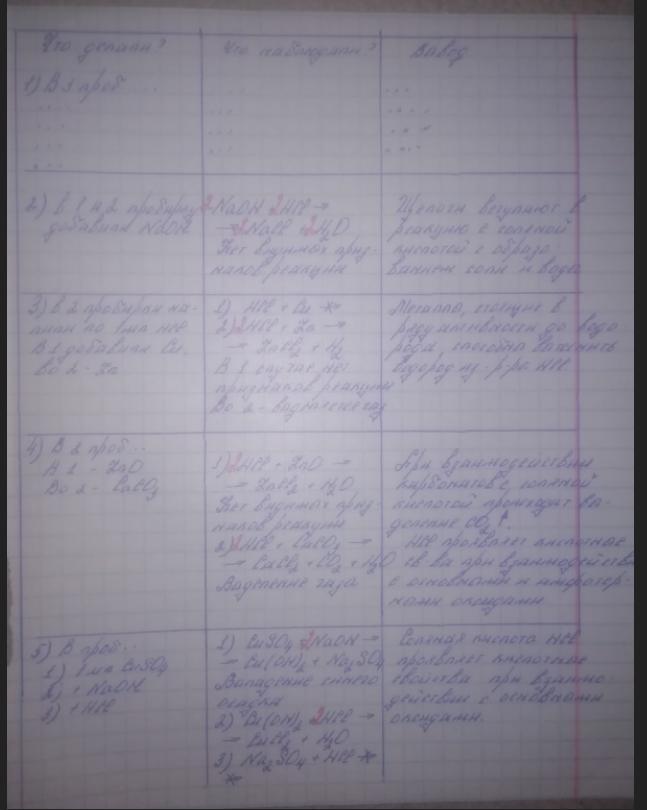 Что делали?
Что наблюдали?
Вывод
1) В 3 проб ....
2) В 1 и 2 пробирку
добавили NaOH
2NaOH 2HCl →
→ 2NaCl 2H₂O
Нет видимых приз-
наков реакции
Щелочи вступают в
реакцию с соляной
кислотой с образо
ванием соли и воды
3) В 2 пробирки на-
лили по 1 мл HCl
В 1 добавили Cu,
Во 2 - Zn
1) HCl + Cu ↛
2) 2HCl + Zn →
→ ZnCl₂ + H₂
В 1 случае нет
признаков реакции
Во 2 - выделяется газ
Металлы, стоящие в
ряду активности до водо
рода, способны вытеснить
водород из р-ра HCl
4) В 2 проб...
В 1 - ZnO
Во 2 - CaCO₃
1) 2HCl + ZnO →
→ ZnCl₂ + H₂O
Нет видимых приз-
наков реакции
2) HCl + CaCO₃ →
→ CaCl₂ + CO₂ + H₂O
Выделение газа
При взаимодействии
карбонатов с соляной
кислотой происходит вы-
деление CO₂↑.
HCl проявляет кислотные
св-ва при взаимодейств
с основными и амфотер-
ными оксидами
5) В проб...
1) 1 мл CuSO₄
2) + NaOH
3) + HCl
1) CuSO₄ 2NaOH →
→ Cu(OH)₂ + Na₂SO₄
Выпадение синего
осадка
2) Cu(OH)₂ 2HCl →
→ CuCl₂ + H₂O
3) Na₂SO₄ + HCl ↛
Соляная кислота HCl
проявляет кислотные
свойства при взаимо-
действии с основными
оксидами.